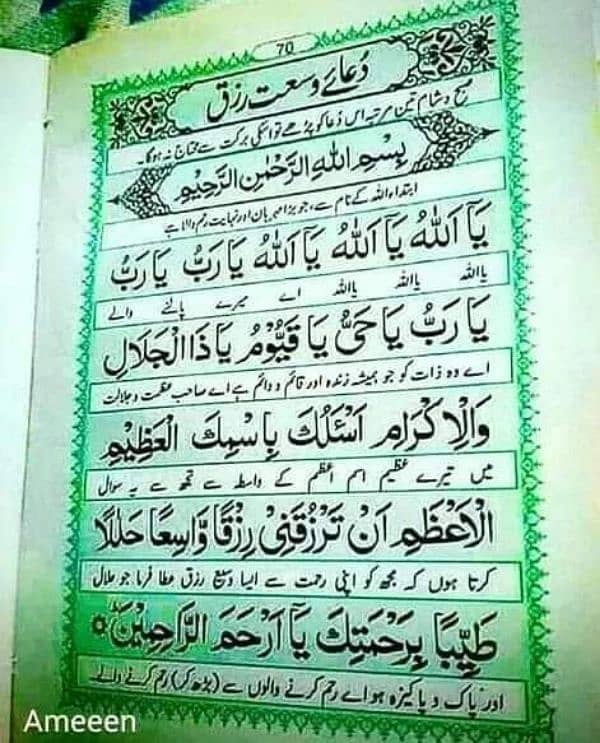 70
دُعائے وسعت رزق
صبح و شام تین مرتبہ اس دُعا کو پڑھے تو اسکی برکت سے محتاج نہ ہوگا۔
بِسْمِ اللهِ الرَّحْمٰنِ الرَّحِيْمِ
ابتداء اللہ کے نام سے، جو بڑا مہربان اور نہایت رحم والا ہے
يَآ اَللهُ يَآ اَللهُ يَآ اَللهُ يَا رَبُّ يَا رَبُّ
یااللہ یااللہ یااللہ اے میرے پالنے والے
يَا رَبُّ يَا حَيُّ يَا قَيُّوْمُ يَا ذَا الْجَلَالِ
اے وہ ذات کو جو ہمیشہ زندہ اور قائم و دائم ہے اے صاحب عظمت و جلالت
وَالْاِكْرَامِ اَسْئَلُكَ بِاسْمِكَ الْعَظِيْمِ
میں تیرے عظیم اسم اعظم کے واسطہ سے تجھ سے یہ سوال
الْاَعْظَمِ اَنْ تَرْزُقَنِىْ رِزْقًا وَّاسِعًا حَلٰلًا
کرتا ہوں کہ مجھ کو اپنی رحمت سے ایسا وسیع رزق عطا فرما جو حلال
طَيِّبًا بِرَحْمَتِكَ يَآ اَرْحَمَ الرَّاحِمِيْنَ
اور پاک و پاکیزہ ہو اے رحم کرنے والوں سے (بڑھ کر) رحم کرنے والے۔
Ameeen